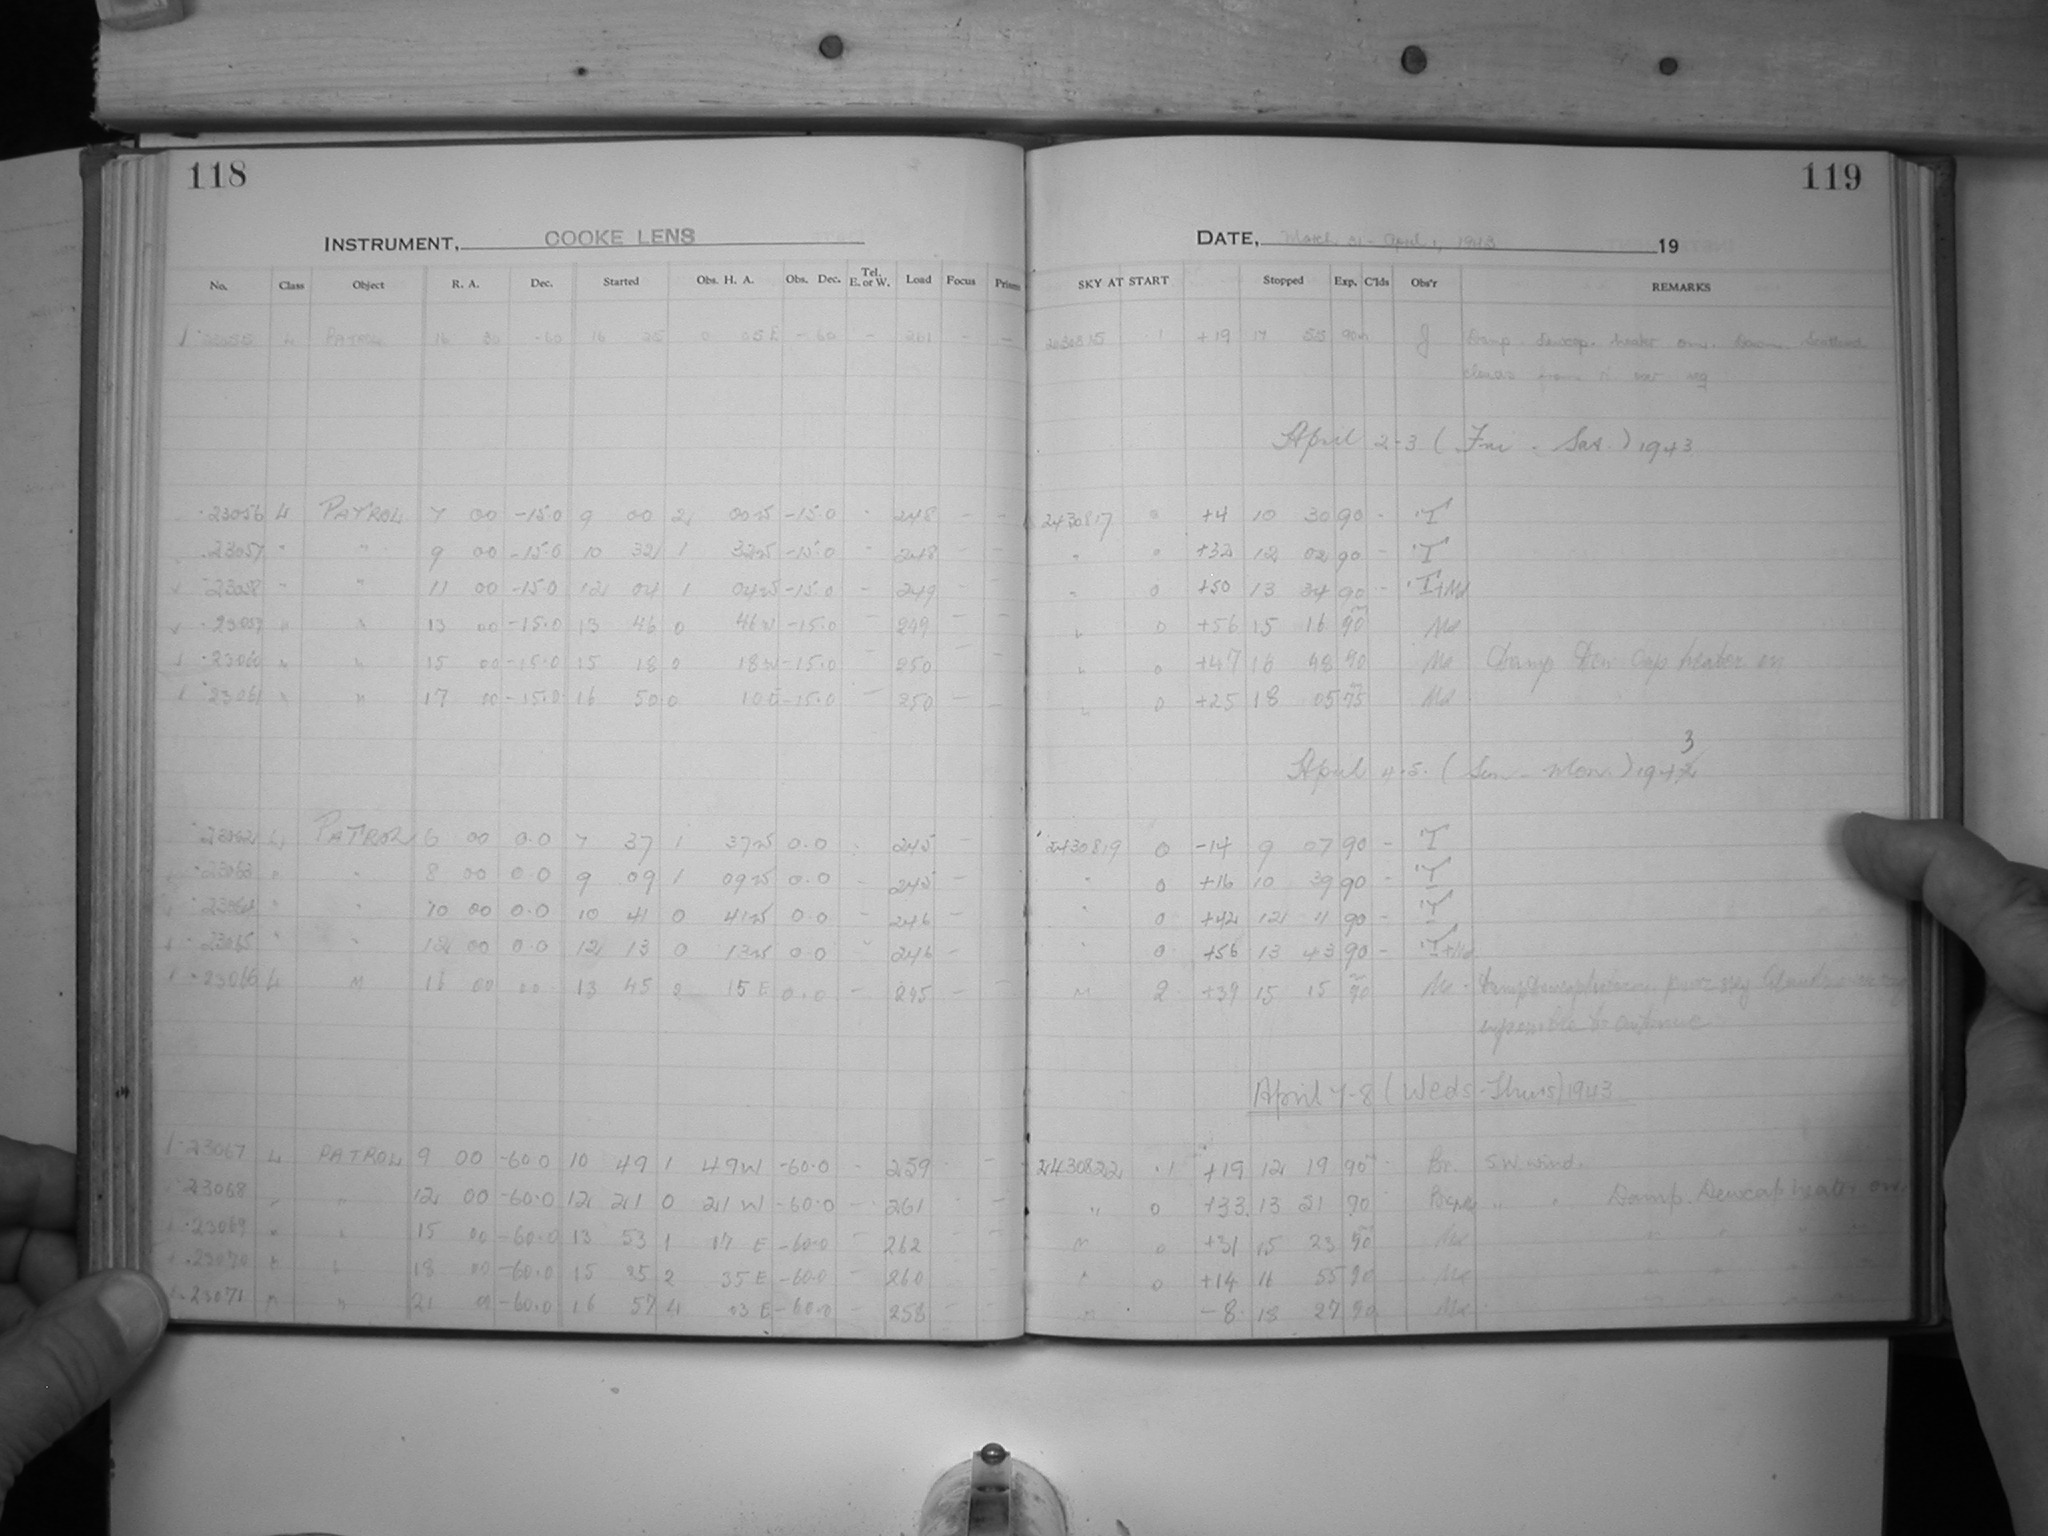 118
INSTRUMENT, COOKE LENS
No. Class Object R. A. Dec. Started Obs. H. A. Obs. Dec. Tel. E. or W. Load Focus Prism
23055 L PATROL 16 30 -60 16 25 0 05 E -60 - 261 - -
23056 L PATROL 7 00 -15.0 9 00 2 00 W -15.0 - 248 - -
23057 " " 9 00 -15.0 10 32 1 32 W -15.0 - 248 - -
23058 " " 11 00 -15.0 12 04 1 04 W -15.0 - 249 - -
23059 " " 13 00 -15.0 13 46 0 46 W -15.0 - 249 - -
23060 " " 15 00 -15.0 15 18 0 18 W -15.0 - 250 - -
23061 " " 17 00 -15.0 16 50 0 10 E -15.0 - 250 - -
23062 L PATROL 6 00 0.0 7 37 1 37 W 0.0 - 245 -
23063 " " 8 00 0.0 9 09 1 09 W 0.0 - 245 -
23064 " " 10 00 0.0 10 41 0 41 W 0.0 - 246 -
23065 " " 12 00 0.0 12 13 0 13 W 0.0 - 246 -
23066 L " 16 00 0.0 13 45 2 15 E 0.0 - 245 - -
23067 L PATROL 9 00 -60.0 10 49 1 49 W -60.0 - 259 - -
23068 " " 12 00 -60.0 12 21 0 21 W -60.0 - 261 - -
23069 " " 15 00 -60.0 13 53 1 17 E -60.0 - 262 -
23070 " " 18 00 -60.0 15 25 2 35 E -60.0 - 260 - -
23071 " " 21 00 -60.0 16 57 4 03 E -60.0 - 258 - -
119
DATE, March 31 - April 1, 1943 19
SKY AT START Stopped Exp. C'lds Obs'r REMARKS
2430815 1 +19 17 55 90m J Damp. Dewcap heater on. Dawn. Scattered
clouds from
April 2-3 (Fri - Sat.) 1943
2430817 0 +4 10 30 90 - T
" 0 +32 12 02 90 - T
" 0 +50 13 34 90 - T+Md
" 0 +56 15 16 90 Md
" 0 +47 16 48 90 Md Damp Dew Cap heater on
" 0 +25 18 05 75 Md
April 4-5. (Sun - Mon.) 1943
2430819 0 -14 9 07 90 - T
" 0 +16 10 39 90 - T
" 0 +42 12 11 90 - T
" 0 +56 13 43 90 - T+Md
" 2 +39 15 15 90 Md
impossible to continue
April 7-8 (Weds - Thurs) 1943
2430822 1 +19 12 19 90 Br. S.W. wind.
" 0 +33 13 51 90 " " Damp. Dewcap heater on.
" 0 +31 15 23 90 Md " " "
" 0 +14 16 55 90 Md " " "
" -8 18 27 90 Md " " "